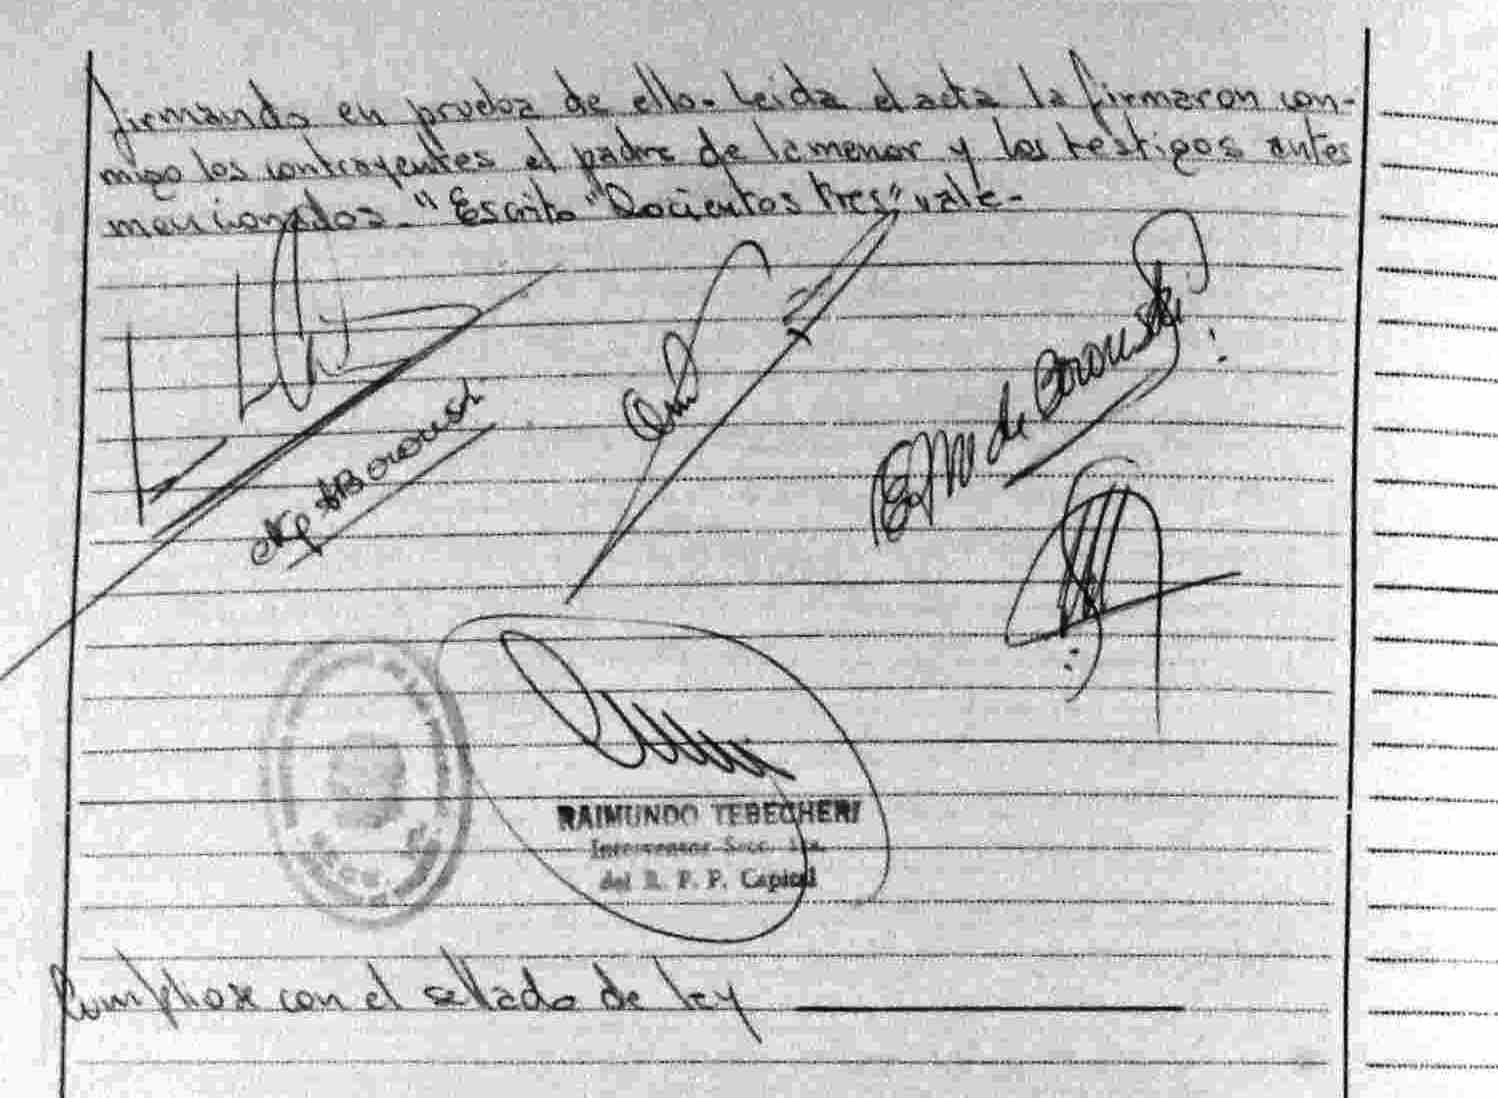 firmando en prueba de ello- Leida el acta la firmaron con-
migo los contrayentes el padre de la menor y los testigos antes
mencionados.- "Escrito "Docientos tres" vale-
Borouski
E M de Borouski
RAIMUNDO TEBECHERI
Interventor Secc. 1ra.
del R. P. P. Capital
Cumpliose con el sellado de ley